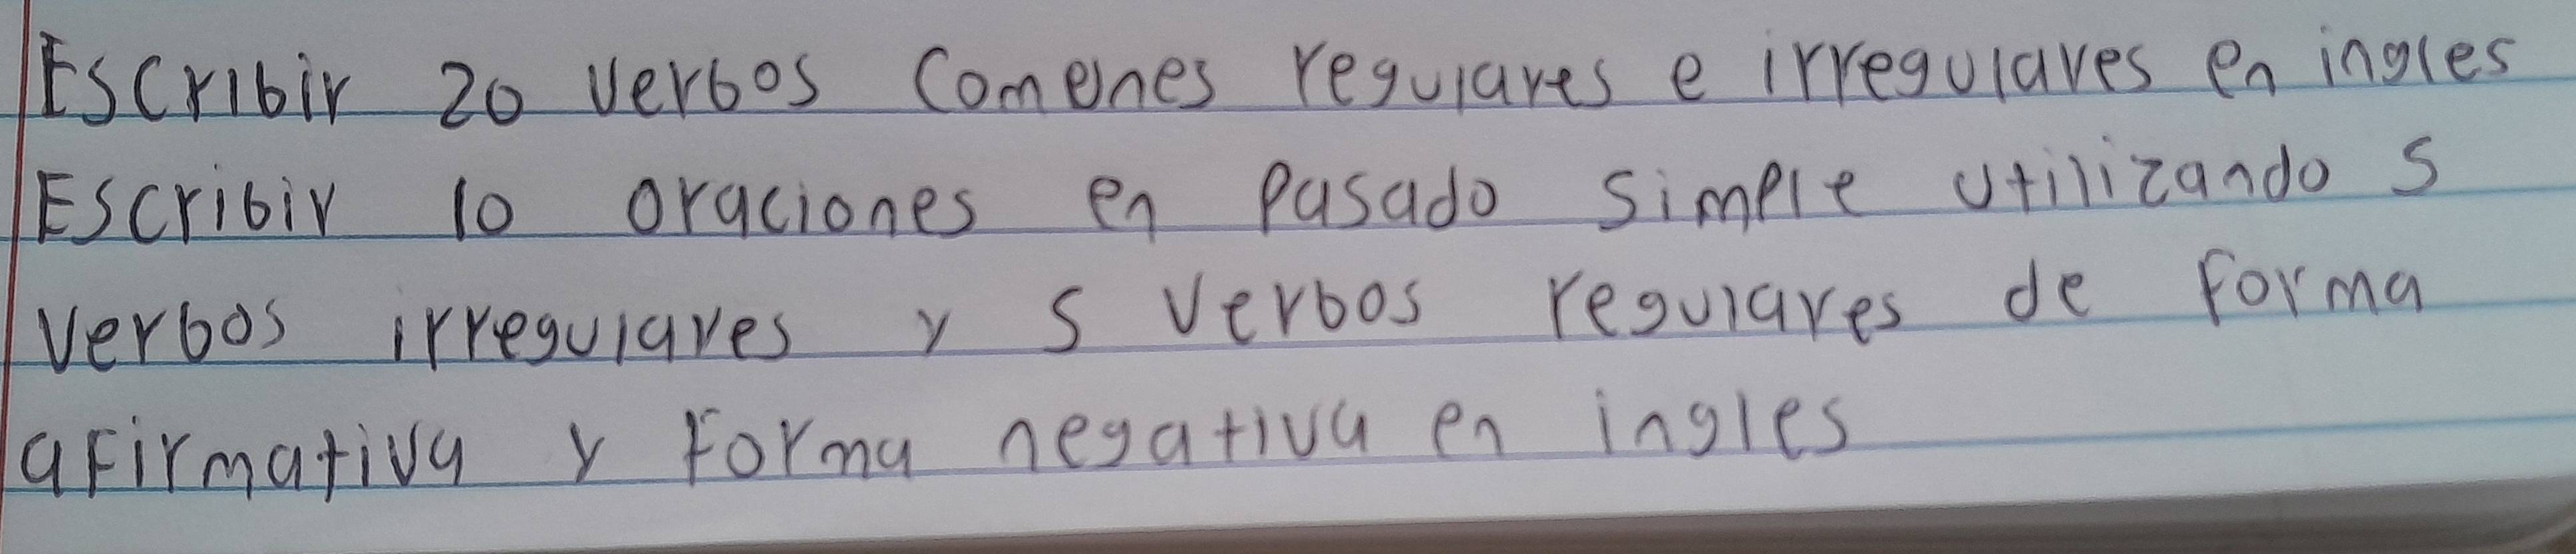 Escribir 20 verbos comenes regulares e irregulares en ingles
Escribir 10 oraciones en pasado simple utilizando 5
verbos irregulares y 5 verbos regulares de forma
afirmativa y forma negativa en ingles